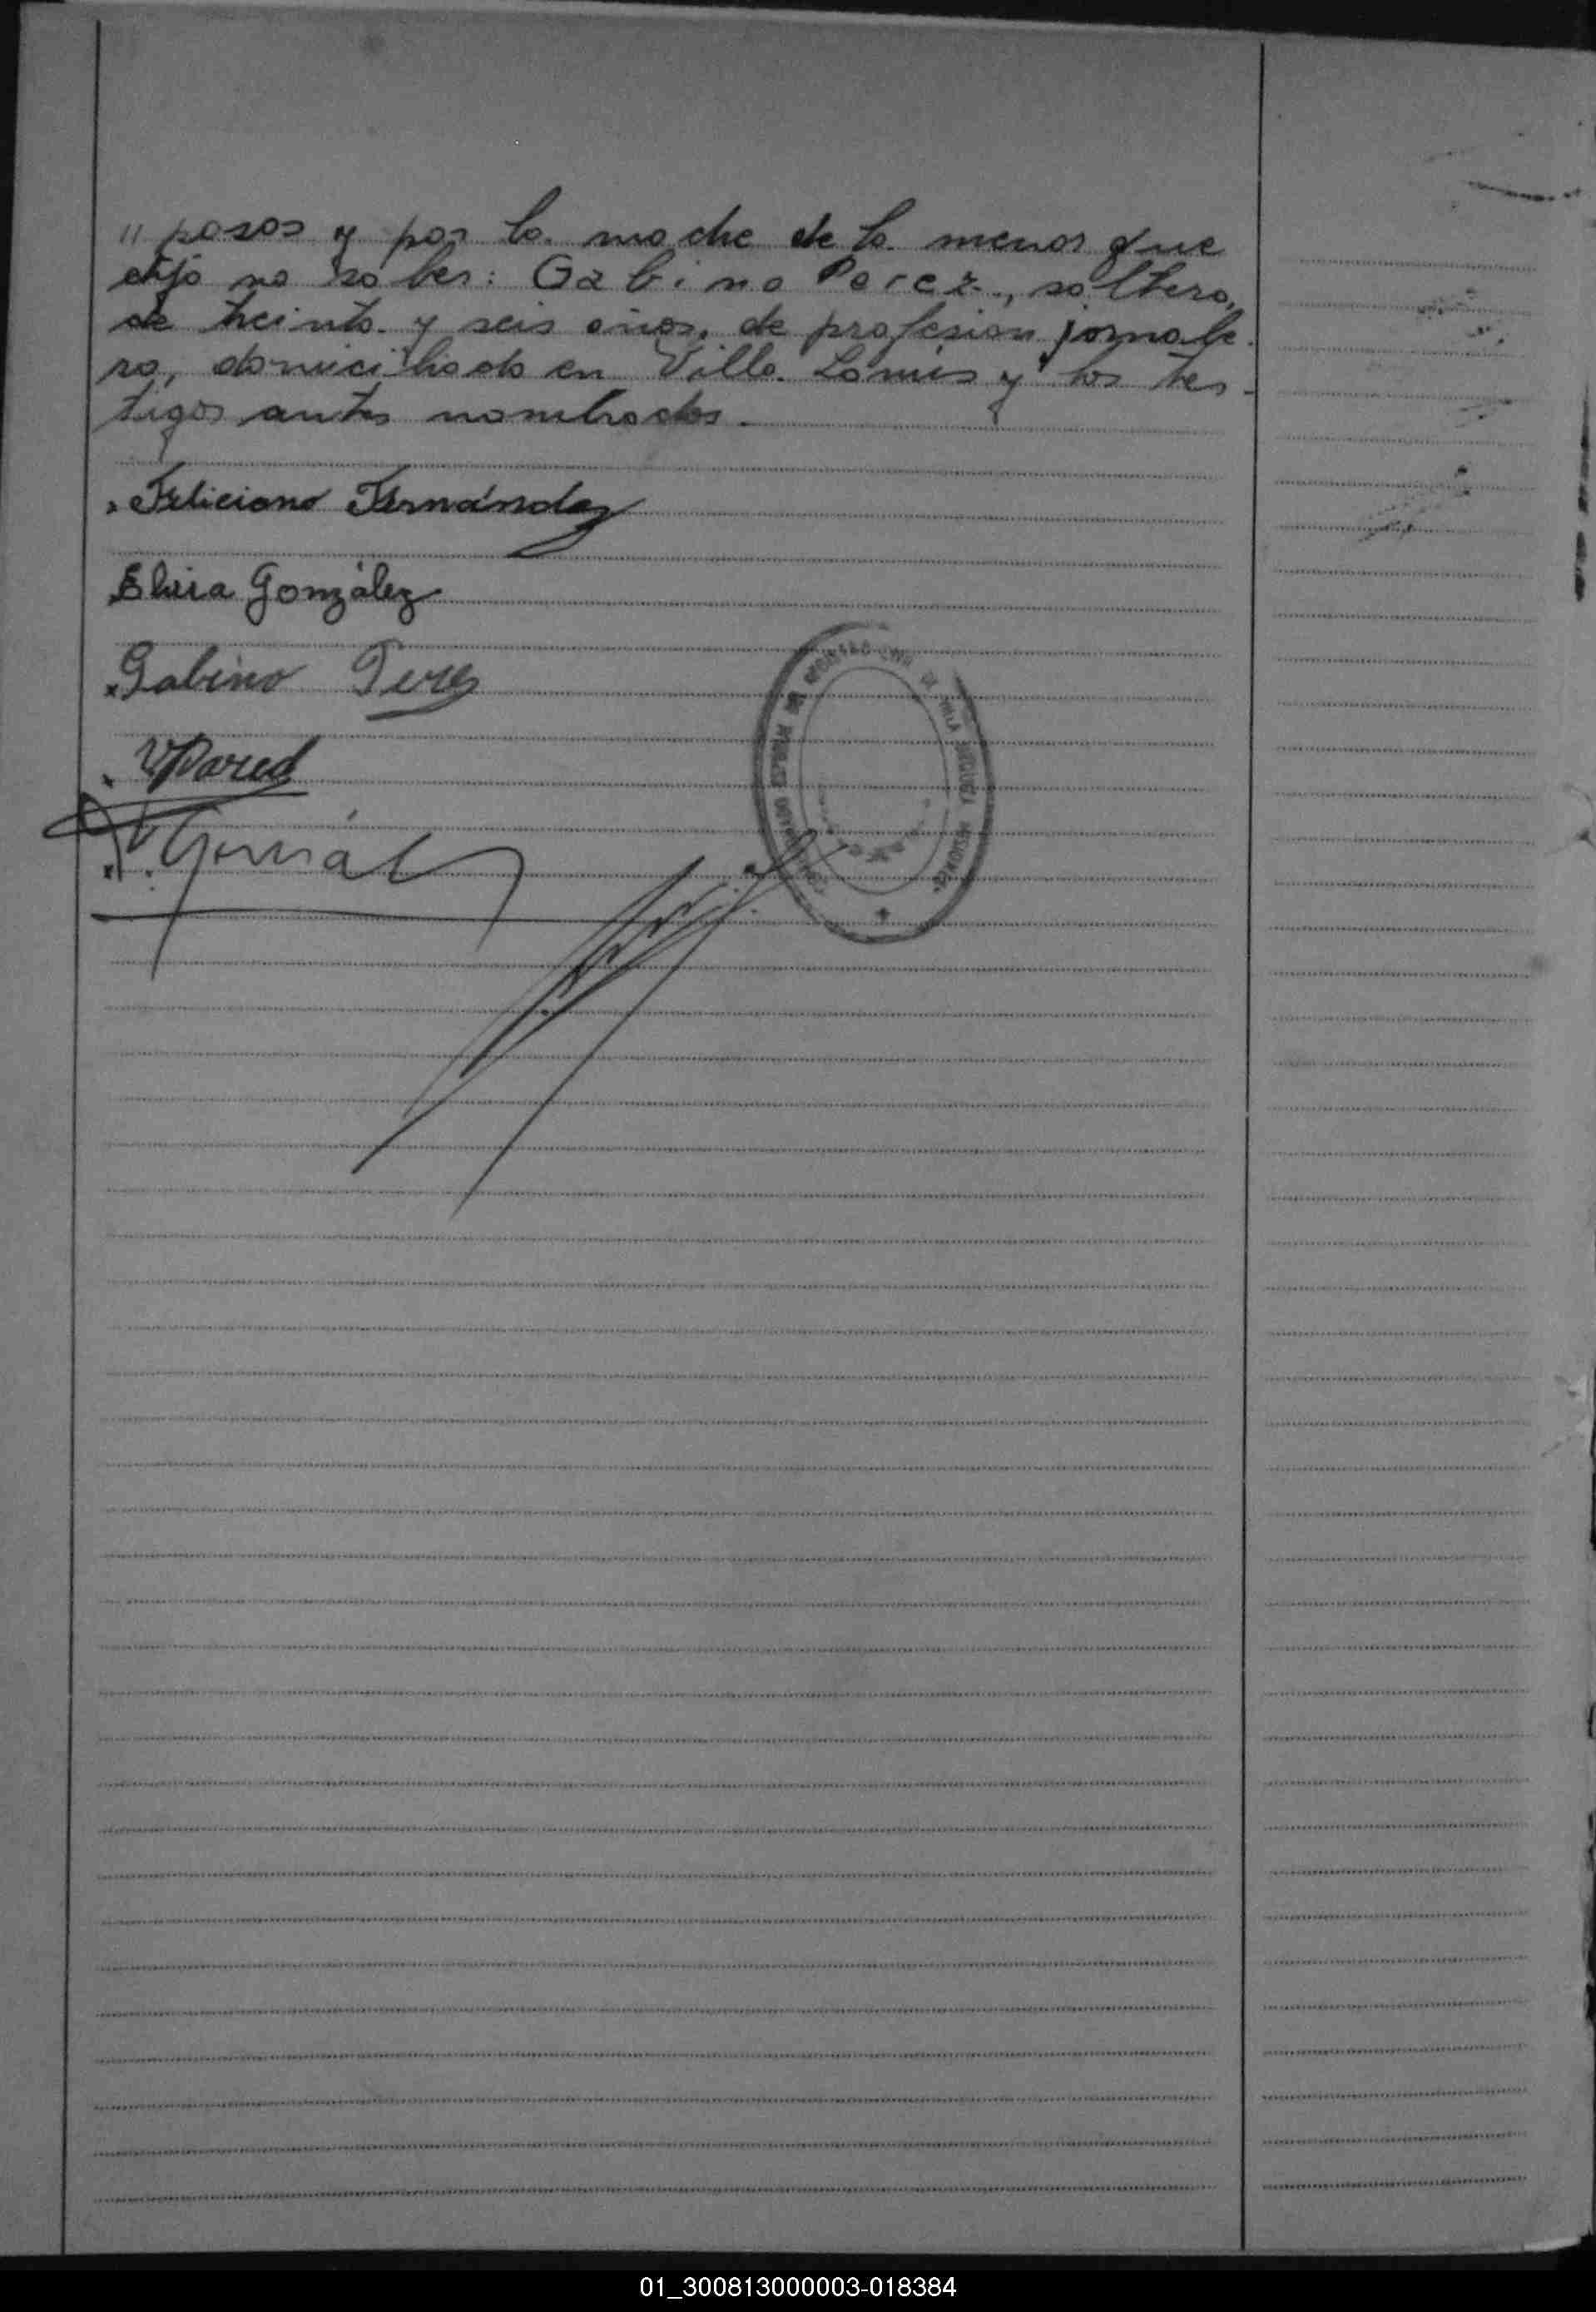 " posos y por la madre de la menor que
dijo no saber: Gabino Perez, soltero,
de treinta y seis años, de profesión jornale-
ro, domiciliado en Villa y los tes-
tigos antes nombrados.
Feliciano Fernández
Elvira González
Gabino Perez
01_300813000003-018384